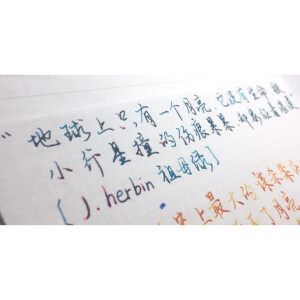 "地球上只有一个月亮,它没有生命,被
小行星撞的伤痕累累,却
[J. herbin 祖母绿]
上最大的
了月亮